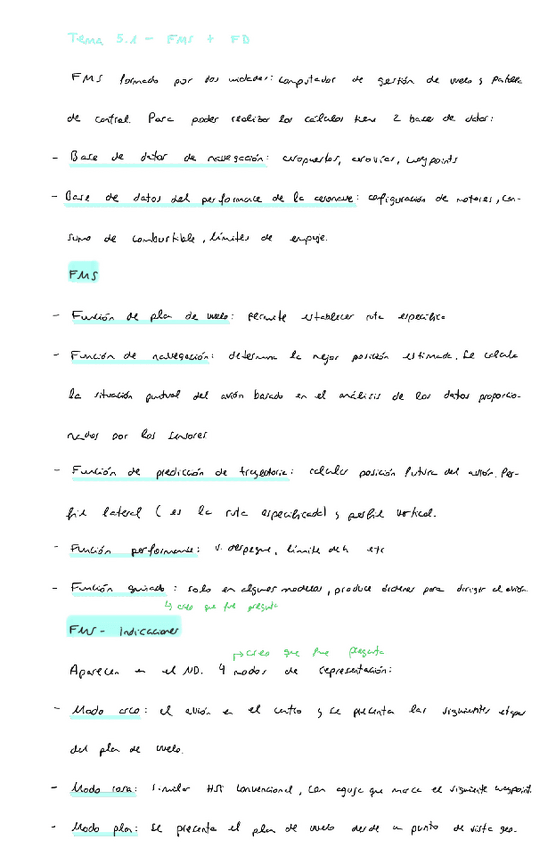 Tema 5.1 - FMS + FD
FMS formado por dos unidades: computador de gestión de vuelo y pantalla
de control. Para poder realizar los cálculos tiene 2 bases de datos:
- Base de datos de navegación: aeropuertos, aerovías, waypoints
- Base de datos del performance de la aeronave: configuración de motores, con-
sumo de combustible, límites de empuje.
FMS
- Función de plan de vuelo: permite establecer ruta específica
- Función de navegación: determina la mejor posición estimada. Se calcula
la situación puntual del avión basado en el análisis de los datos proporcio-
nados por los sensores
- Función de predicción de trayectoria: calcular posición futura del avión. Per-
fil lateral (es la ruta especificada) y perfil vertical.
- Función performance: v. despegue, límite de h etc
- Función guiado: solo en algunos modelos, produce órdenes para dirigir el avión.
↳ creo que fue pregunta
FMS - Indicaciones
↱ creo que fue pregunta
Aparecen en el ND. 4 modos de representación:
- Modo arco: el avión en el centro y se presenta las siguientes etapas
del plan de vuelo.
- Modo rosa: similar HSI convencional, con aguja que marca el siguiente waypoint.
- Modo plan: se presenta el plan de vuelo desde un punto de vista geo-